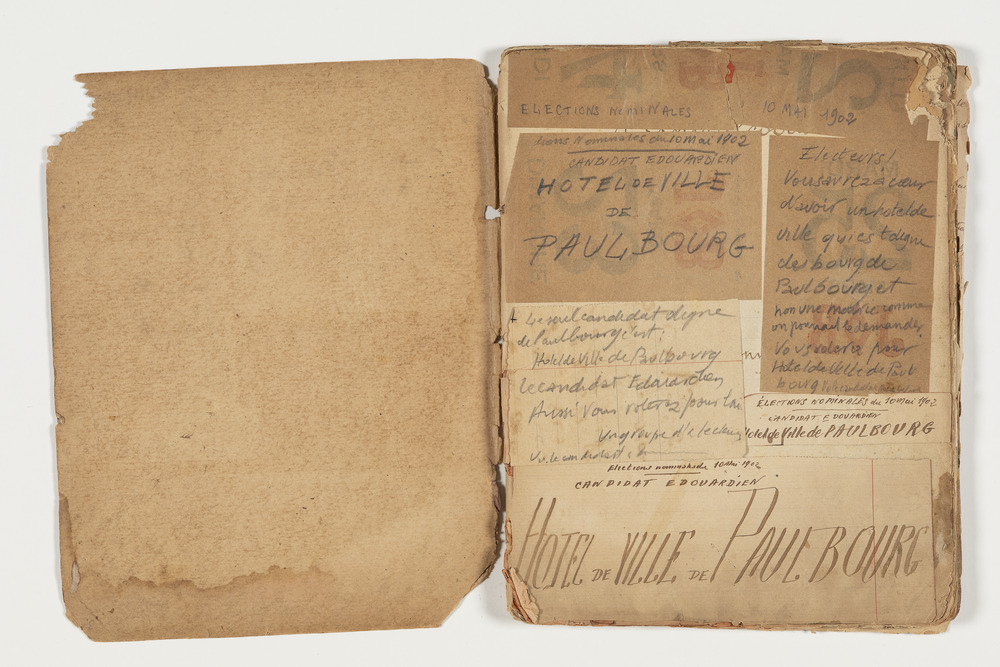 ELECTIONS NOMINALES 10 MAI 1902
tions Nominales du 10 mai 1902
CANDIDAT EDOUARDIEN
HOTEL DE VILLE
DE
PAULBOURG
Electeurs!
Vous avez à cœur
d'avoir un hotel de
ville qui est digne
de bourg de
Paulbourg et
non une mairie comme
on pourrait le demander
Vous voterez pour
Hotel de Ville de Paul
bourg
Le seul candidat digne
de Paulbourg c'est
Hotel de Ville de Paulbourg
Le candidat Edouardien
Aussi vous voterez pour lui
Un groupe d'electeurs
ÉLECTIONS NOMINALES du 10 mai 1902
CANDIDAT EDOUARDIEN
Hotel de Ville de PAULBOURG
Elections nominales du 10 Mai 1902
CANDIDAT EDOUARDIEN
HOTEL DE VILLE DE PAULBOURG